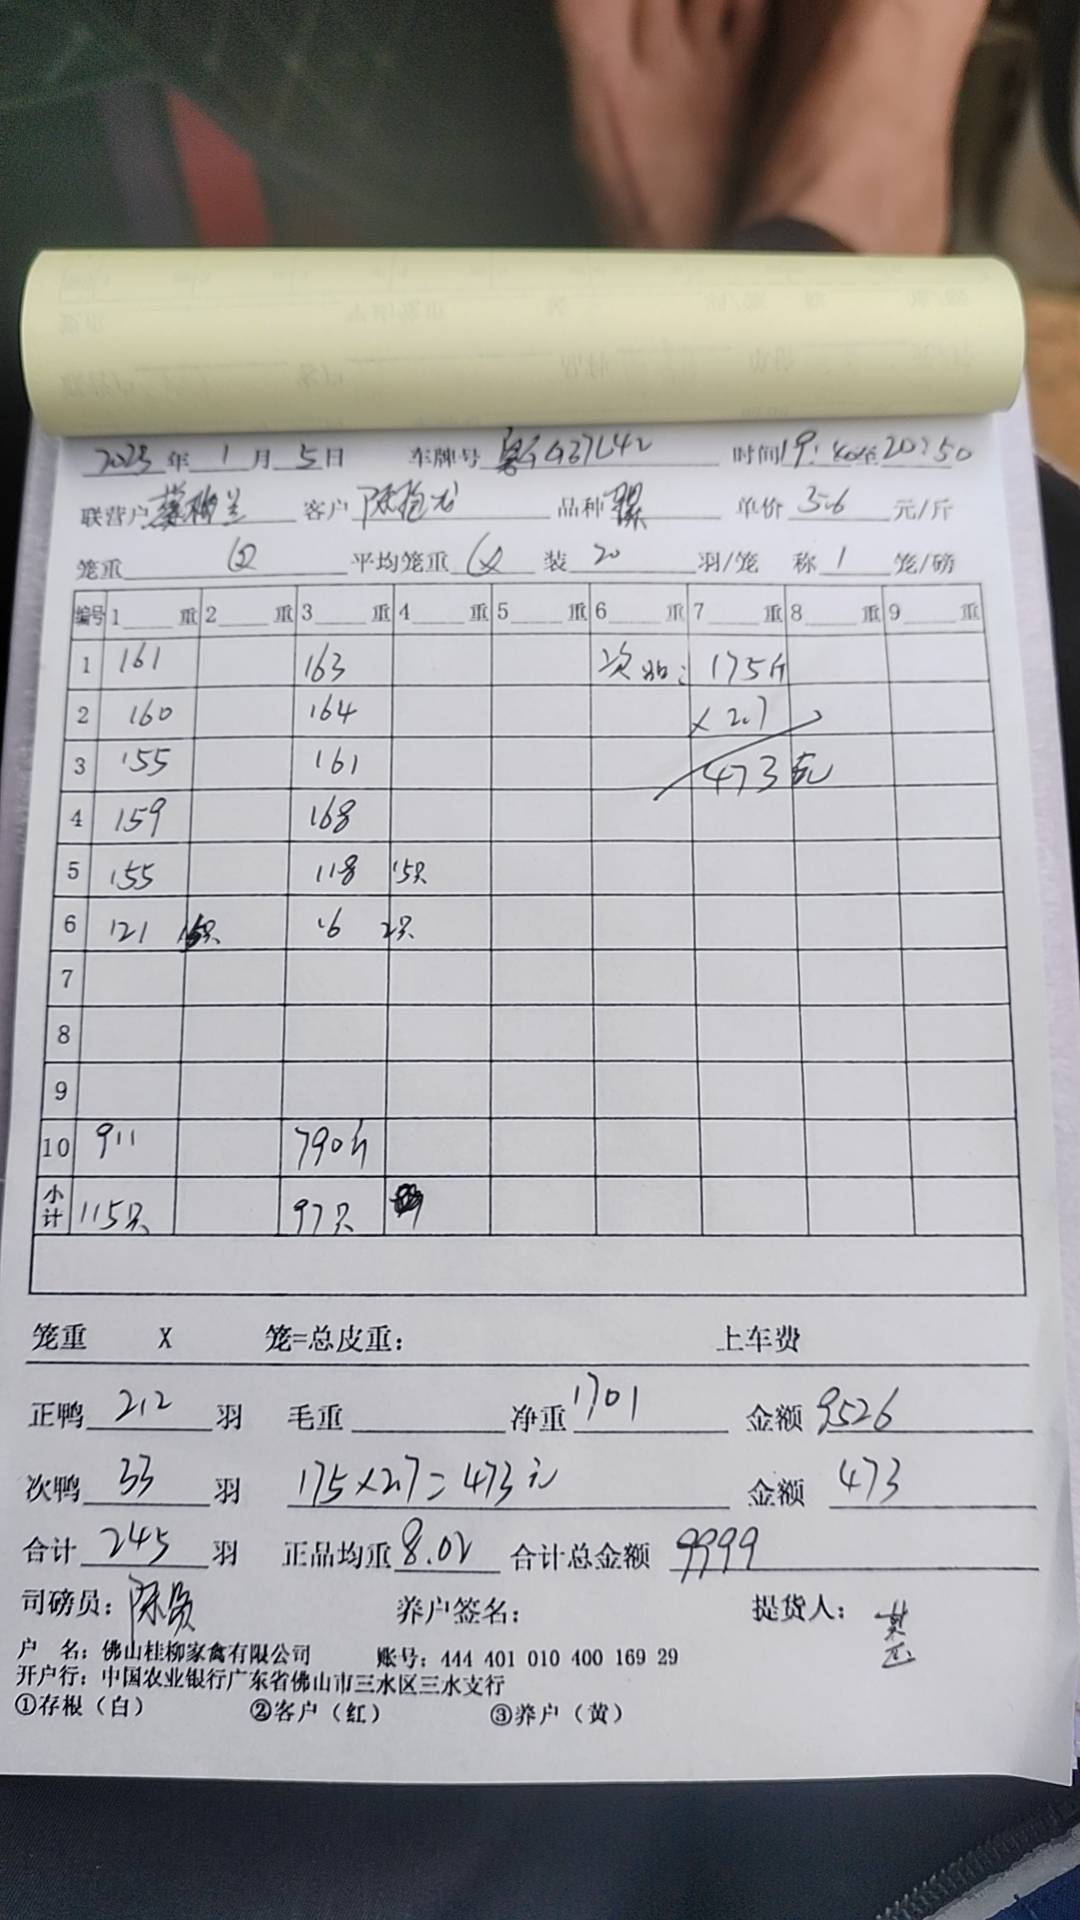 2025年1月5日 车牌号 时间19:40至20:50
联营户 客户 品种 单价5.6元/斤
笼重 平均笼重 装20羽/笼 称1笼/磅
编号 1 重 2 重 3 重 4 重 5 重 6 重 7 重 8 重 9 重
1 161 163 次鸭: 175斤
2 160 164 ×2.7
3 155 161 473元
4 159 168
5 155 118 15只
6 121 15只 16 2只
7
8
9
10 911 790斤
小计 115只 97只
笼重 X 笼=总皮重: 上车费
正鸭212羽 毛重 净重1701 金额9526
次鸭33羽 175×2.7=473元 金额473
合计245羽 正品均重8.02 合计总金额9999
司磅员: 养户签名: 提货人:
户 名:佛山桂柳家禽有限公司 账号:444 401 010 400 169 29
开户行:中国农业银行广东省佛山市三水区三水支行
①存根(白) ②客户(红) ③养户(黄)